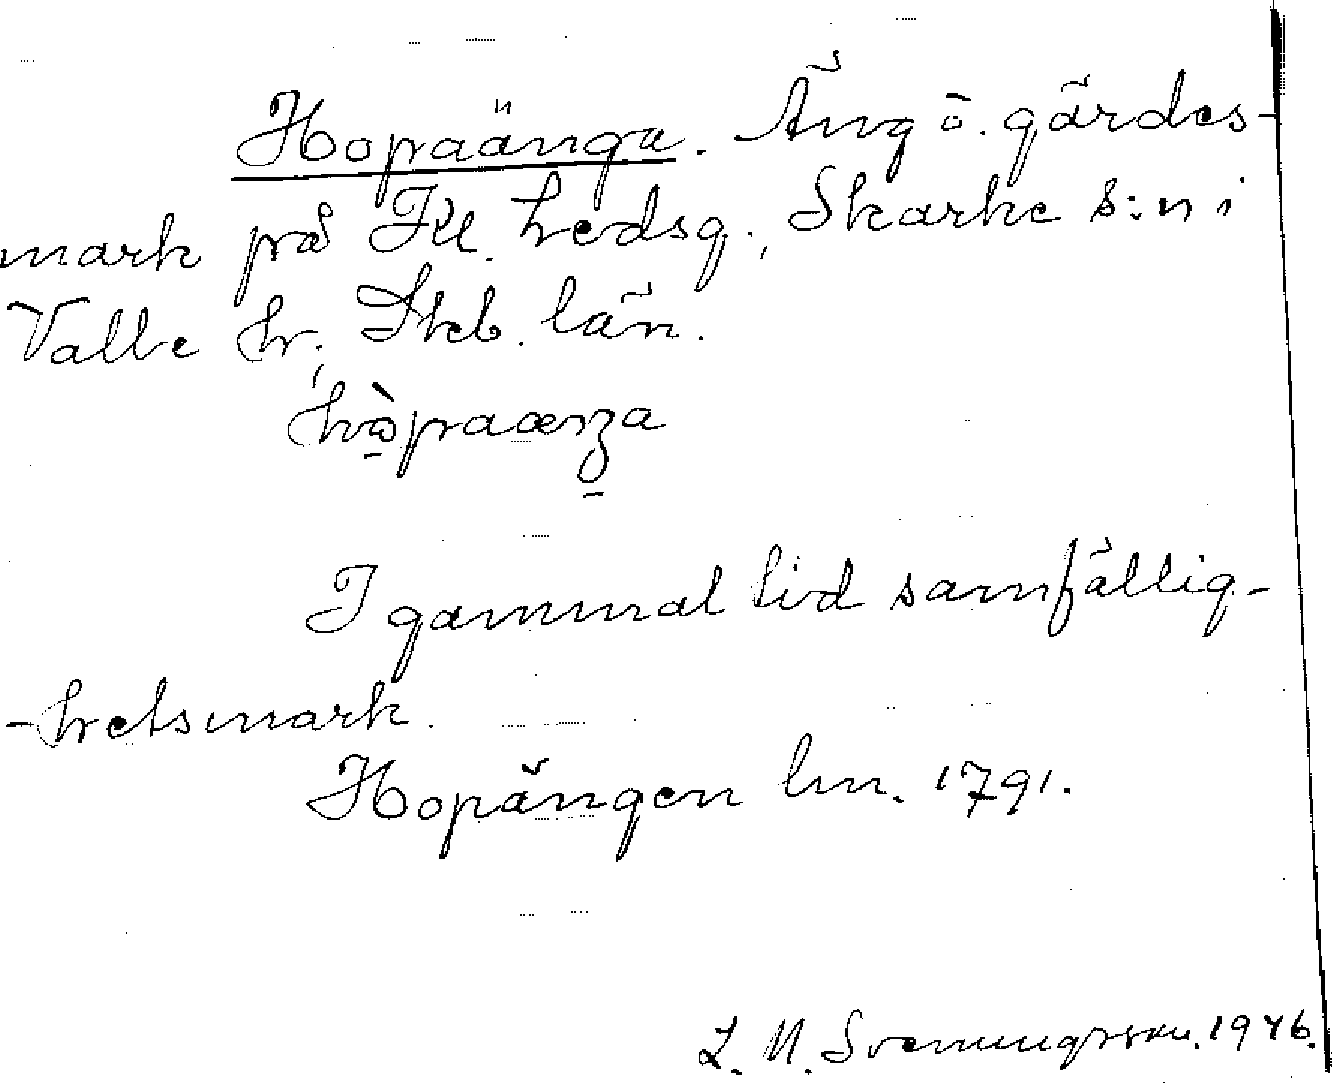 Hopaänga. Äng o. gärdes-
mark på Kl. hedsg., Skarke s:n i
Valle hr, Skb. län.
I gammal tid samfällig-
-hetsmark.
Hopängen lm. 1791.
L. N. Svenungsson. 1946.